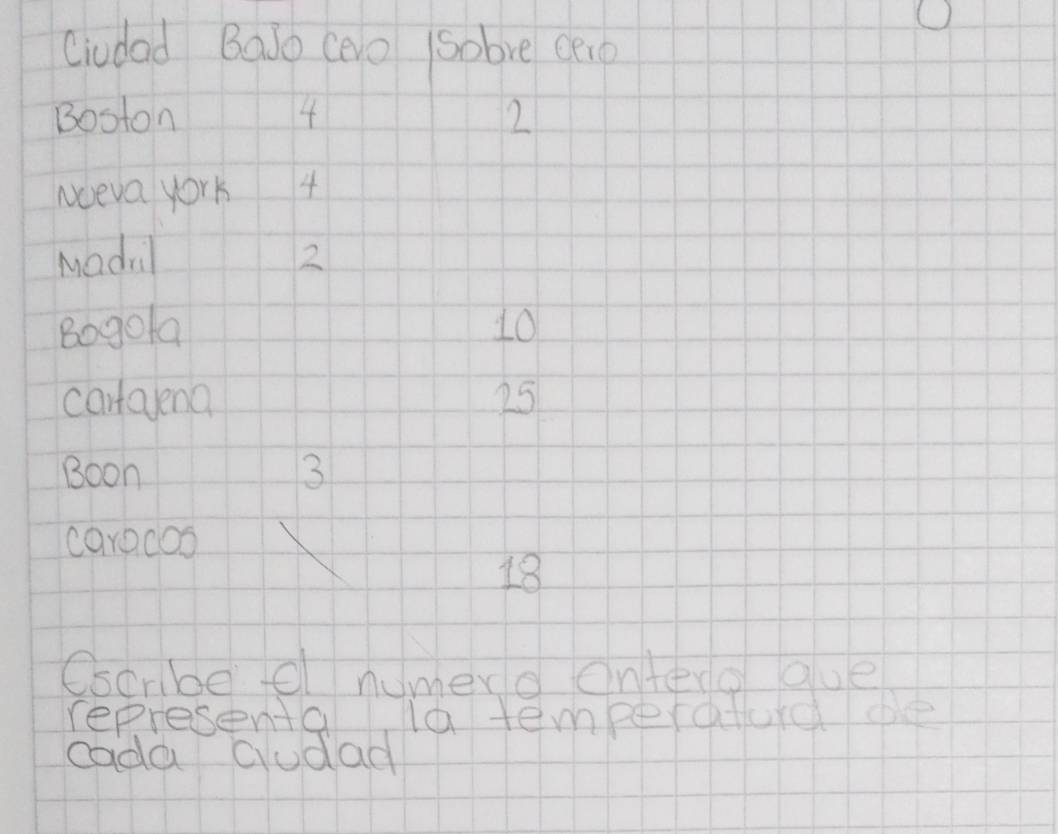 Ciudad Bajo cero Sobre cero
Boston 4 2
Nueva york 4
Madril 2
Bogota 10
cartagena 25
Boon 3
caracas 18
Escribe el numero entero que
representa la temperatura de
cada ciudad